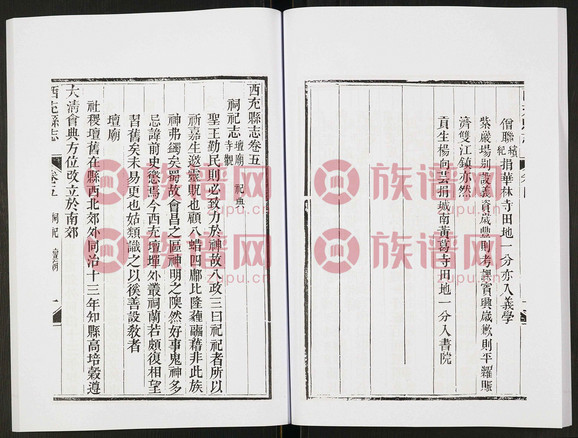 僧聰 紀 捐華林寺田地一分亦入義學
紫嚴場別設義資歲豐則考課賓興歲歉則平糶賑
濟雙江鎮亦然
貢生楊向 捐城南黃葛寺田地一分入書院
西充縣志卷五
祠祀志 壇廟 祀典 寺觀
聖王勤民則必致力於神故八政三曰祀祀者所以
祈嘉生邀靈貺也顧八蜡四鄘比隆 非此族
神弗 矣蜀故會昌之區神明之隩然好事鬼神多
忌諱前史 焉今西充壇墠外叢祠蘭若頗復相望
習舊矣未易更也姑類識之以俟善設教者
壇廟
社稷壇舊在縣西北郊外同治十三年知縣高培穀遵
大清會典方位改立於南郊
西充縣志 卷五 祠祀 壇廟 一
族谱网
zupu.cn
族谱网
zupu.cn
族谱网
zupu.cn
族谱网
zupu.cn